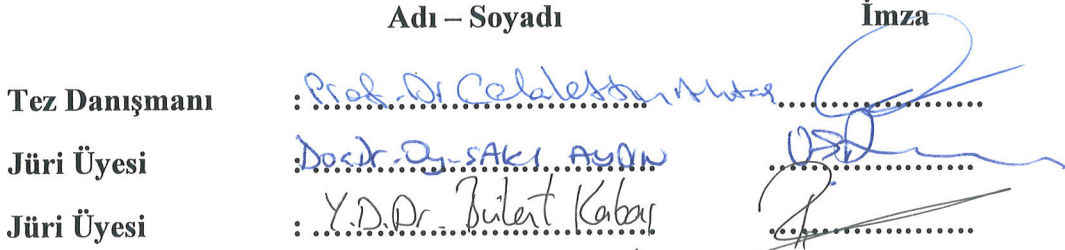 Adı – Soyadı İmza
Tez Danışmanı : Prof. Dr Celalettin
Jüri Üyesi : Doç. Dr. AYDIN
Jüri Üyesi : Y.D.Dr. Bülent Kabaş